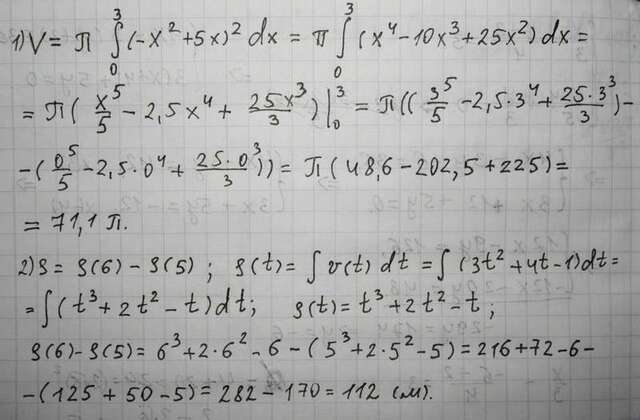 1) V = π ∫₀³ (-x² + 5x)² dx = π ∫₀³ (x⁴ - 10x³ + 25x²) dx =
= π ( x⁵/5 - 2,5x⁴ + 25x³/3 ) |₀³ = π (( 3⁵/5 - 2,5·3⁴ + 25·3³/3 ) -
- ( 0⁵/5 - 2,5·0⁴ + 25·0³/3 )) = π ( 48,6 - 202,5 + 225 ) =
= 71,1 π.
2) S = S(6) - S(5) ; S(t) = ∫ v(t) dt = ∫ (3t² + 4t - 1) dt =
= ∫ (t³ + 2t² - t) dt ; S(t) = t³ + 2t² - t ;
S(6) - S(5) = 6³ + 2·6² - 6 - (5³ + 2·5² - 5) = 216 + 72 - 6 -
- (125 + 50 - 5) = 282 - 170 = 112 (м).